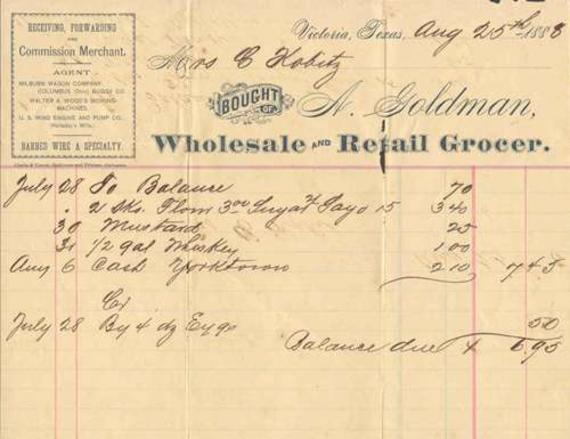 RECEIVING, FORWARDING
AND
Commission Merchant.
AGENT
MILBURN WAGON COMPANY.
COLUMBUS (Ohio) BUGGY CO.
WALTER A. WOOD'S MOWING
MACHINES.
U. S. WIND ENGINE AND PUMP CO.,
BARBED WIRE A SPECIALTY.
Victoria, Texas, Aug 25th 1888
Mrs C Kobitz
BOUGHT OF A. Goldman,
Wholesale AND Retail Grocer.
July 28 To Balance 70
" 2 Sks. Flour 3.00 Sugar 15 3 40
30 Mustard 25
31 1/2 gal Whiskey 1 00
Aug 6 Cash Yorktown 2 10 7 45
Cr
July 28 By 4 dz Eggs 50
Balance due 6.95